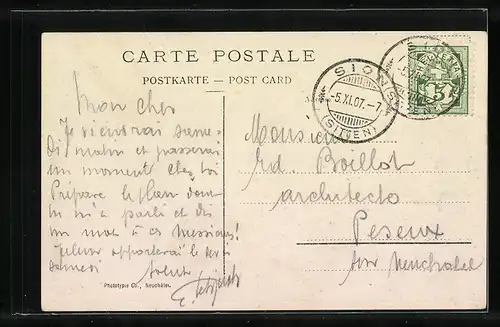 CARTE POSTALE
POSTKARTE – POST CARD
SION (SITTEN)
-5.XI.07.-7
Mon cher
Je viendrai same-
di matin et passerai
un moment chez toi
Prépare le plan dont
tu m'a parlé et dis
un mot à ces Messieurs!
apporterai le
samedi
Salut
Monsieur
Ed. Boillot
architecte
Peseux
sur Neuchatel
Phototypie Co., Neuchâtel.